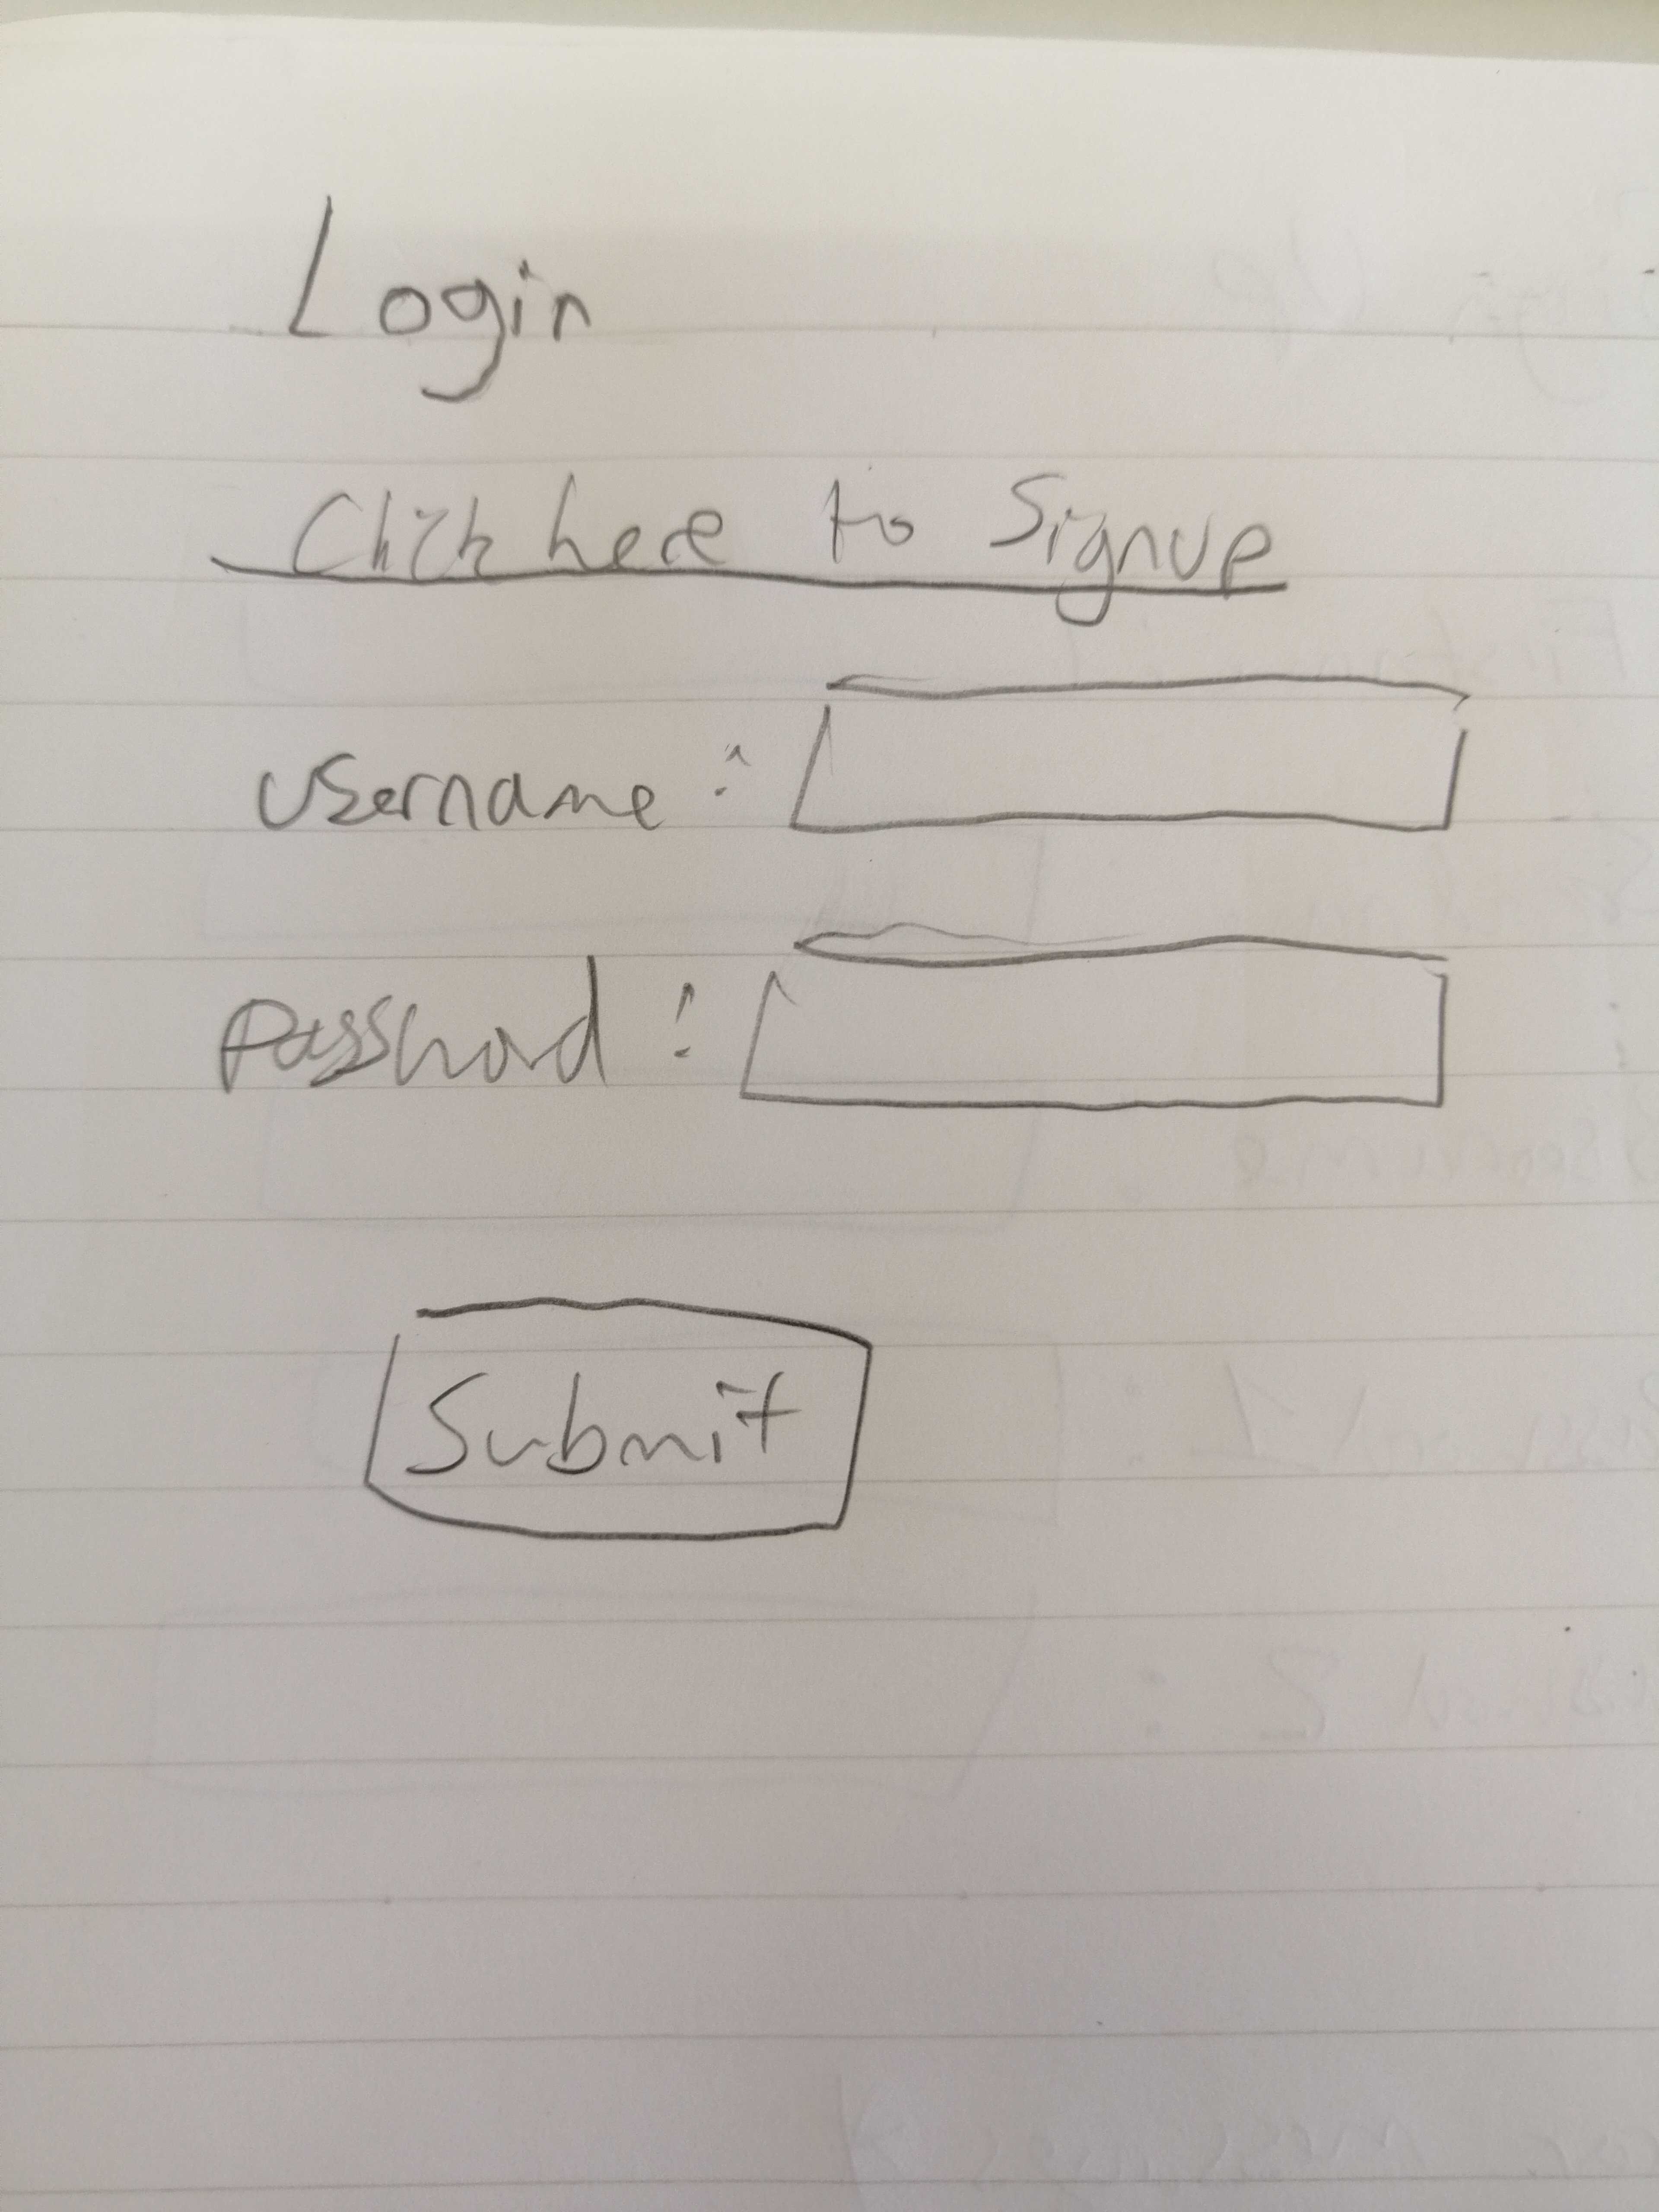 Login
Click here to Signup
Username :
Password :
Submit